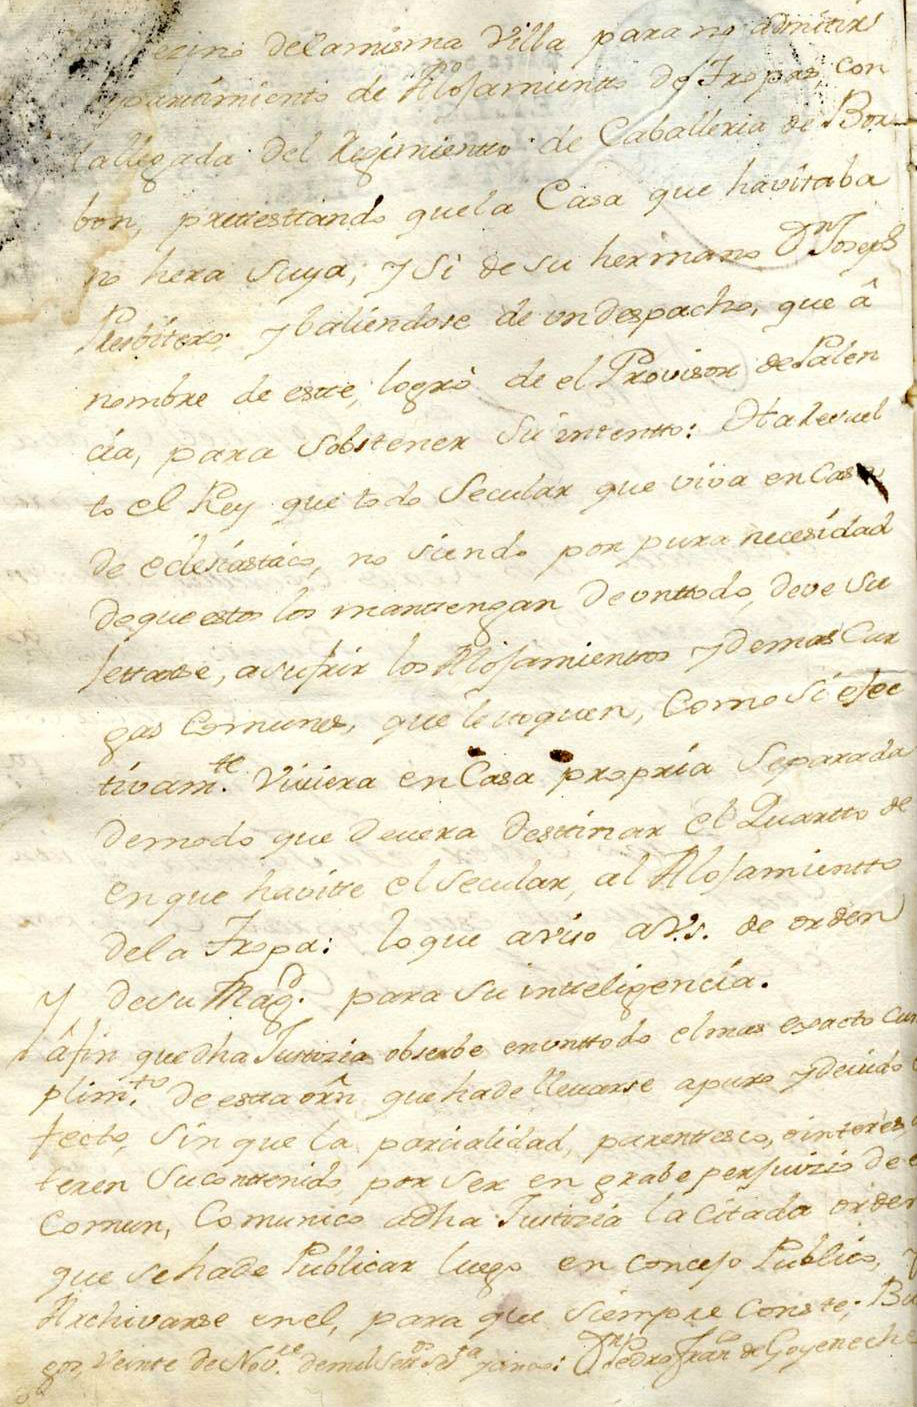 ezino delamisma Villa para no admitir
partimiento de Alojamientto de Tropas, con
la llegada del Regimientto de Caballeria de Bor
bon, prettesttando quela Casa que havitaba
no hera suya, y Si de su hermano Dn Joseph
Presbitero; y baliendose de un despacho, que â
nombre de estte, logrò de el Provisor de Palen
cia, para sobstener su intentto: Ha Resuel
to el Rey que todo Secular que viva en Casa
de eclesiastico, no siendo por pura necesidad
deque estos los manttengan de unttodo, deve su
jettarse, a sufrir los Alojamienttos y demas Car
gas Comunes, que le toquen, Como si efec
tivamte. Viviera en Casa propria Separada
demodo que devera desttinar el Quartto de
en que havitte el Secular, al Alojamientto
dela Tropa: lo que aviso a V.S. de orden
Y desu Magd. para su intteligencia.
âfin que dha Justizia obserbe en unttodo el mas exacto Cum
plimto. de estta orñ que hade llevarse a puro y devido
fecto, sin que la parcialidad, parenttesco, o interès
teren su conttenido por ser en grabe perjuizio de
Comun, Comunico adha Justizia la Citada orden
que se hade Publicar luego en concejo Publico,
Archivarse en el, para que siempre Conste; Bur
gos, Veinte de Nove. demil Settos Sesta y cinco: Dn Pedro Fran co de Goyeneche